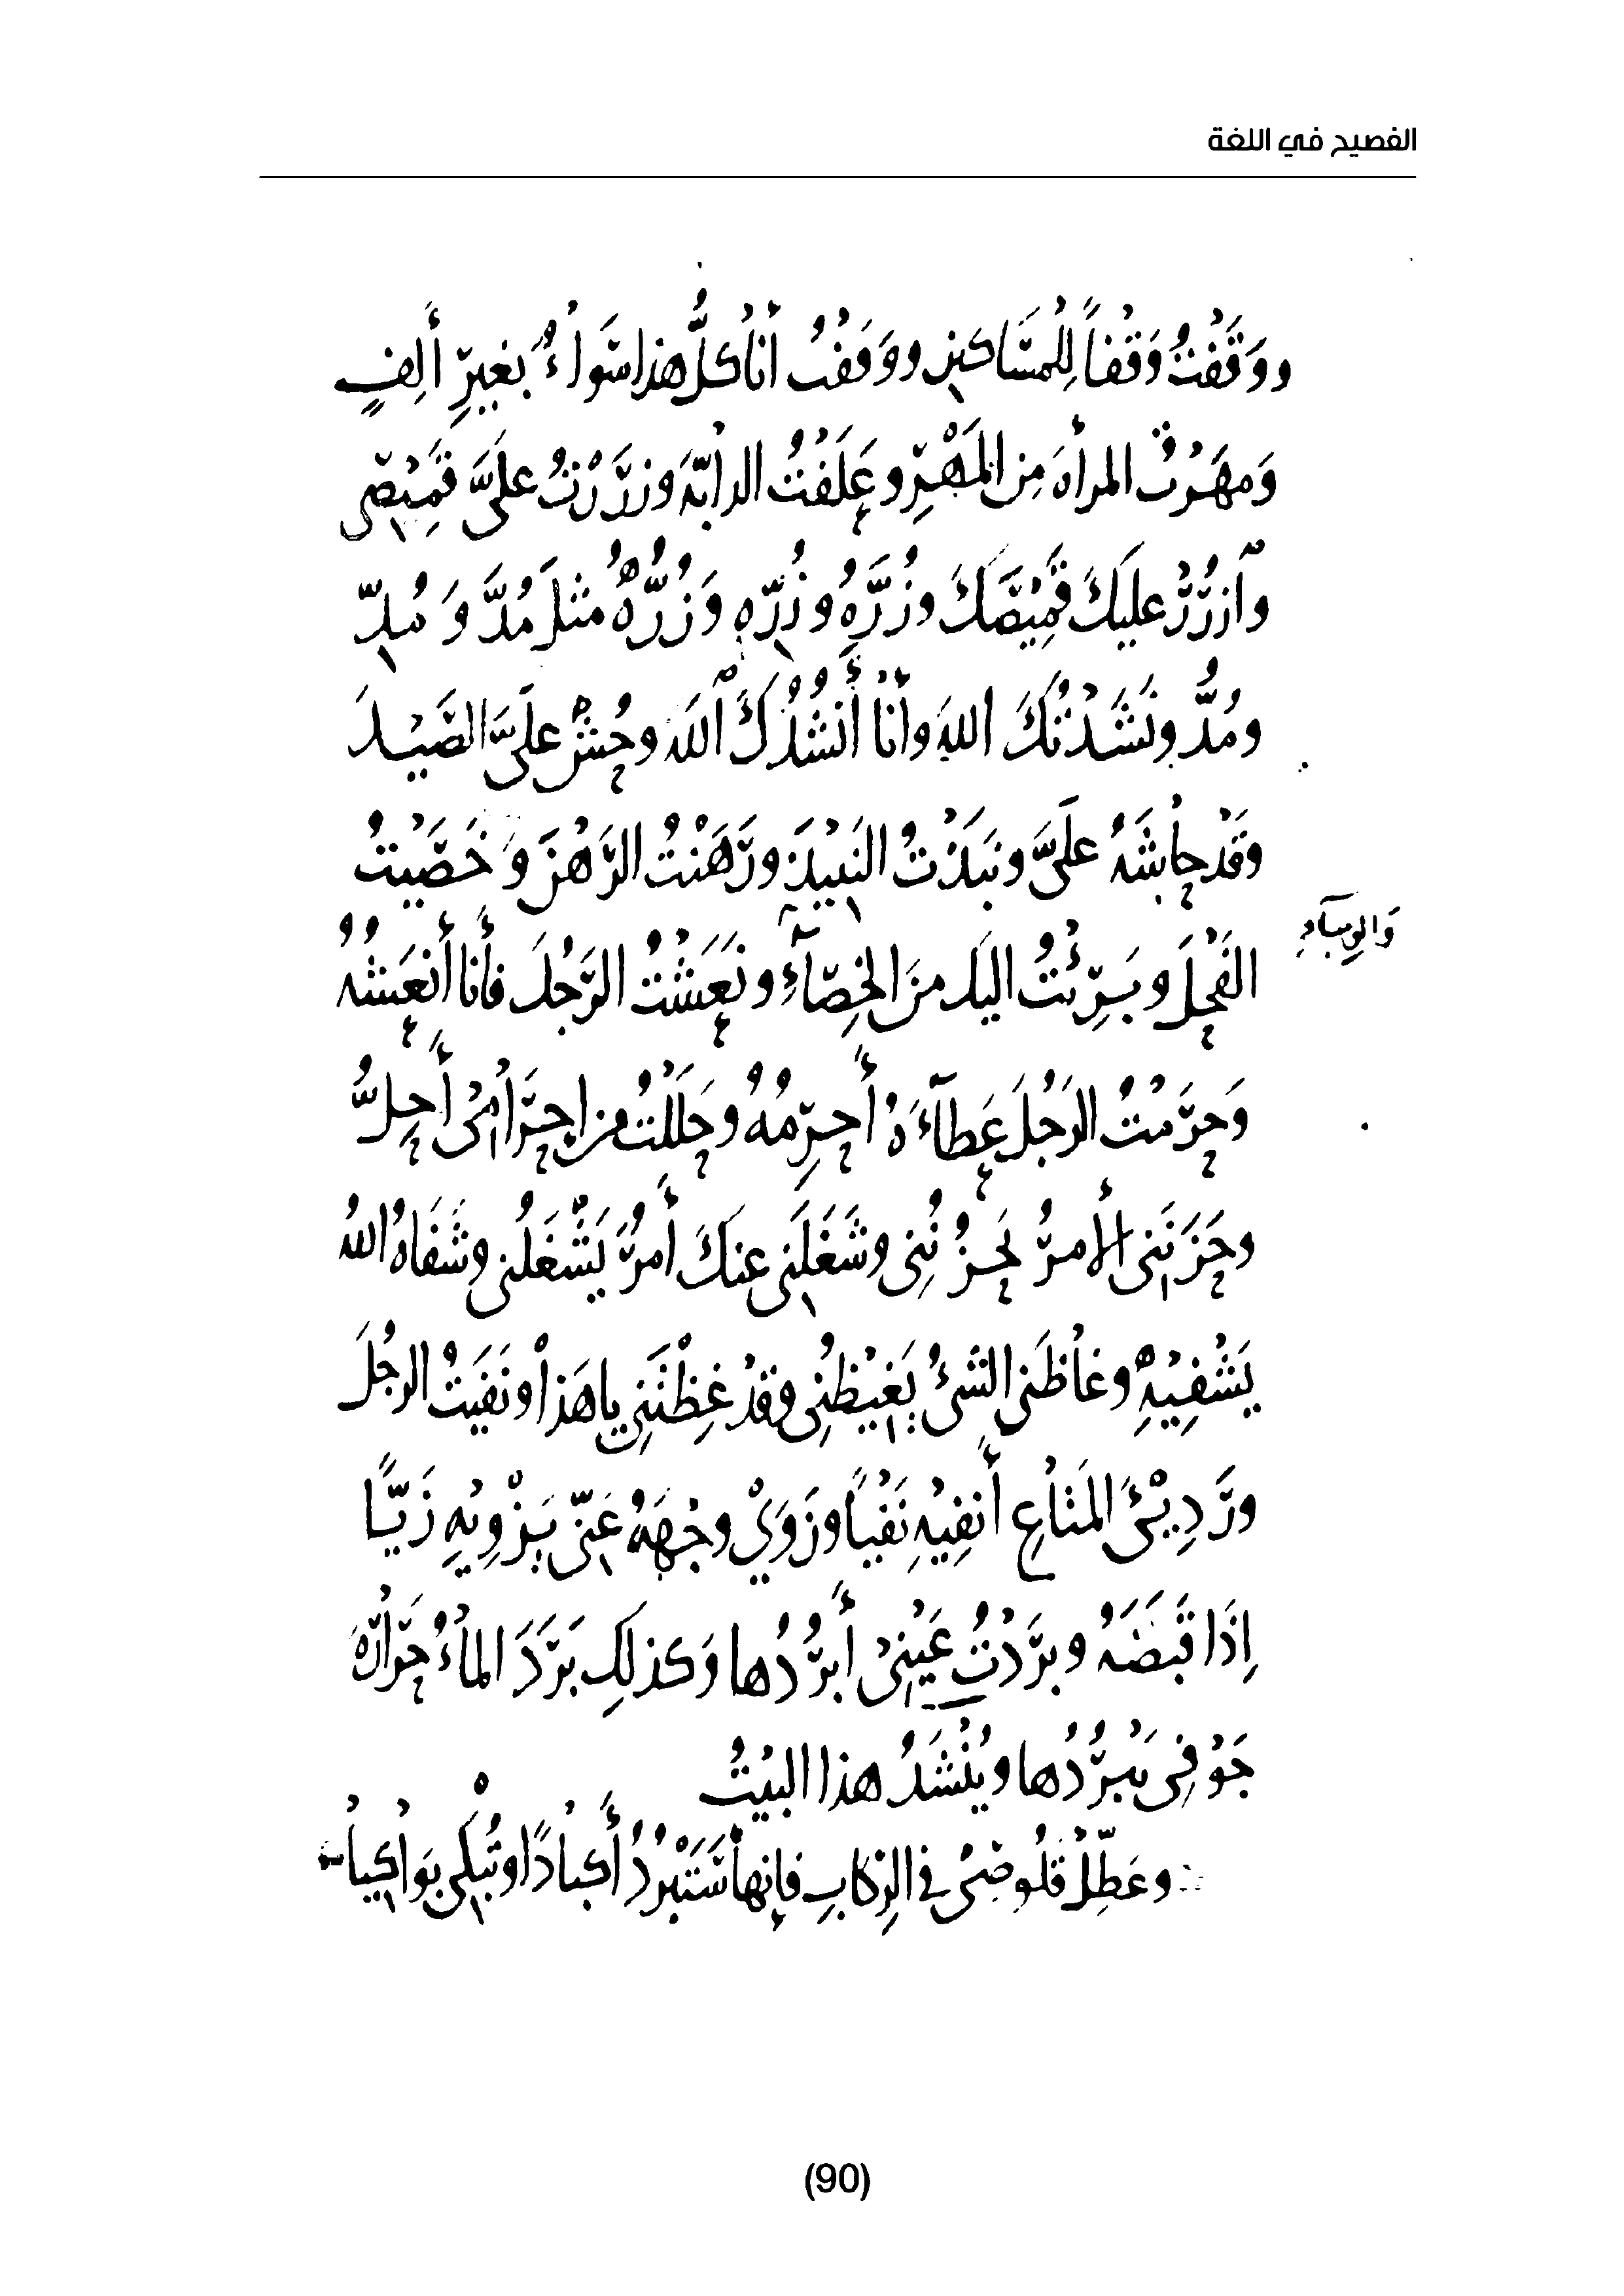 الفصيح في اللغة
ووَقَفْتُ وَقْفاً لِلْمَسَاكينِ ووَقَفْتُ أَنَا كلُّ هذا سَواءٌ بغيرِ أَلِفٍ
وَمهَرْتُ المرأةَ مِن المَهْرِ وعَلَفْتُ الدابّةَ وزَرَرْتُ علَىَّ قَمِيْصِى
وٱزرُرْ عليكَ قَمِيْصَكَ وزُرَّهُ وزُرِّهِ وَزُرُّهُ مثلَ مُدَّ وَمُدِّ
ومُدُّ ونَشَدْتُكَ اللهَ وأَنَا أَنْشُدُكَ ٱللهَ وحُشْ علَىَّ الصَّيْدَ
وقَدْ حاشَهُ علَىَّ ونبَذْتُ النَبيذَ ورَهَنْتُ الرَّهْنَ وَخَصَيْتُ
الفَحْلَ وبَرِئْتُ اليكَ منَ الخِصَآءِ ونَعَشْتُ الرَّجُلَ فأَنا أَنعَشُهُ
وَالوِجآءِ
وَحرَمْتُ الرَجُلَ عَطآءَهُ أَحرِمُهُ وحَلَلْتُ من احرَامِىْ أَحِلُّ
وحَزَنَنِى الأمرُ يَحزُنُنِى وشَغَلَنِى عنكَ أَمرٌ يَشْغَلُنِى وشَفَاهُ اللهُ
يَشْفِيْهِ وغاظَنى الشىءُ يَغيْظُنِى وقَدْ غِظْتَنِى يا هَذا ونَفَيتُ الرجُلَ
ورَدِيْئَ المَتاعِ أَنفِيْهِ نَفْياً وزَوَىْ وجْهَهُ عَنّى يَزْوِيْهِ زَيّاً
إِذَا قَبَضَهُ وبرَدْتُ عَيْنِىْ أَبرُدُها وَكذلِكَ بَرَدَ الماءُ حرَارَةَ
جَوْفِى يَبرُدُها ويُنْشَدُ هذا البيْتُ
وعَطِّلْ قَلُوصِىْ في الرِّكابِ فإنها سَتَبْرُدُ أَكباداً وتُبْكِى بَواكيا
(90)